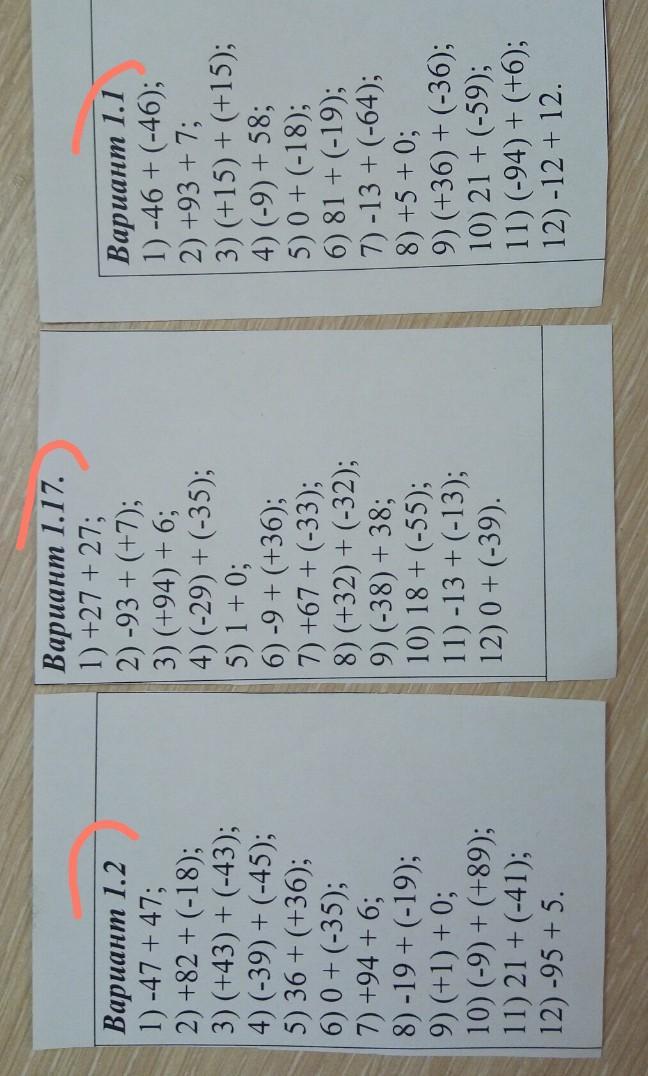 Вариант 1.2
1) -47 + 47;
2) +82 + (-18);
3) (+43) + (-43);
4) (-39) + (-45);
5) 36 + (+36);
6) 0 + (-35);
7) +94 + 6;
8) -19 + (-19);
9) (+1) + 0;
10) (-9) + (+89);
11) 21 + (-41);
12) -95 + 5.
Вариант 1.17.
1) +27 + 27;
2) -93 + (+7);
3) (+94) + 6;
4) (-29) + (-35);
5) 1 + 0;
6) -9 + (+36);
7) +67 + (-33);
8) (+32) + (-32);
9) (-38) + 38;
10) 18 + (-55);
11) -13 + (-13);
12) 0 + (-39).
Вариант 1.1
1) -46 + (-46);
2) +93 + 7;
3) (+15) + (+15);
4) (-9) + 58;
5) 0 + (-18);
6) 81 + (-19);
7) -13 + (-64);
8) +5 + 0;
9) (+36) + (-36);
10) 21 + (-59);
11) (-94) + (+6);
12) -12 + 12.